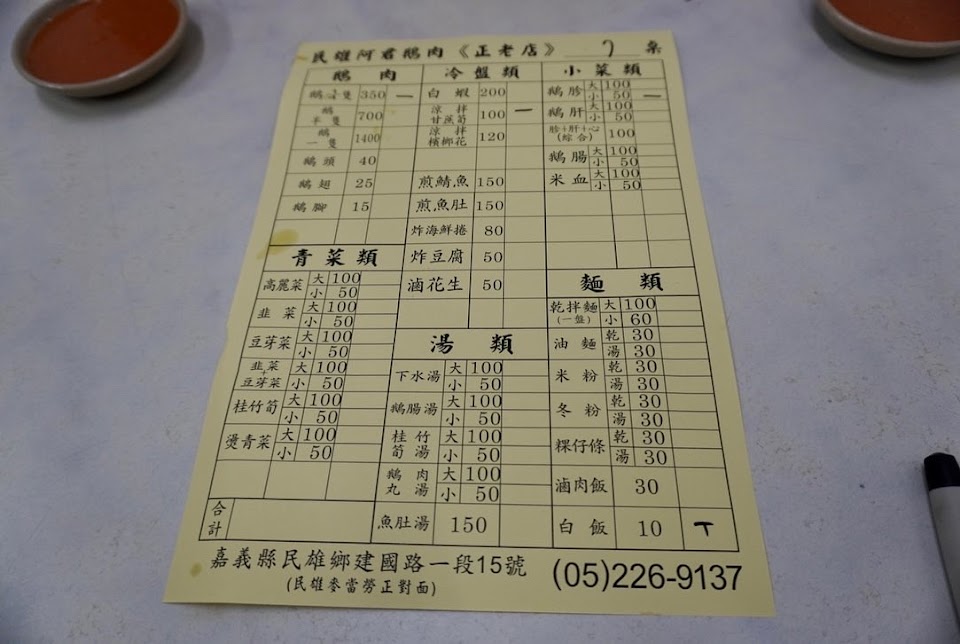 民雄阿君鵝肉《正老店》 7 桌
鵝肉
鵝小隻 350 一
鵝半隻 700
鵝一隻 1400
鵝頭 40
鵝翅 25
鵝腳 15
青菜類
高麗菜 大 100
小 50
韭菜 大 100
小 50
豆芽菜 大 100
小 50
韭菜+豆芽菜 大 100
小 50
桂竹筍 大 100
小 50
燙青菜 大 100
小 50
合計
冷盤類
白蝦 200
涼拌甘蔗筍 100 一
涼拌檳榔花 120
煎鯖魚 150
煎魚肚 150
炸海鮮捲 80
炸豆腐 50
滷花生 50
湯類
下水湯 大 100
小 50
鵝腸湯 大 100
小 50
桂竹筍湯 大 100
小 50
鵝肉丸湯 大 100
小 50
魚肚湯 150
小菜類
鵝胗 大 100
小 50 一
鵝肝 大 100
小 50
胗+肝+心(綜合) 100
鵝腸 大 100
小 50
米血 大 100
小 50
麵類
乾拌麵(一盤) 大 100
小 60
油麵 乾 30
湯 30
米粉 乾 30
湯 30
冬粉 乾 30
湯 30
粿仔條 乾 30
湯 30
滷肉飯 30
白飯 10 丅
嘉義縣民雄鄉建國路一段15號
(民雄麥當勞正對面)
(05)226-9137